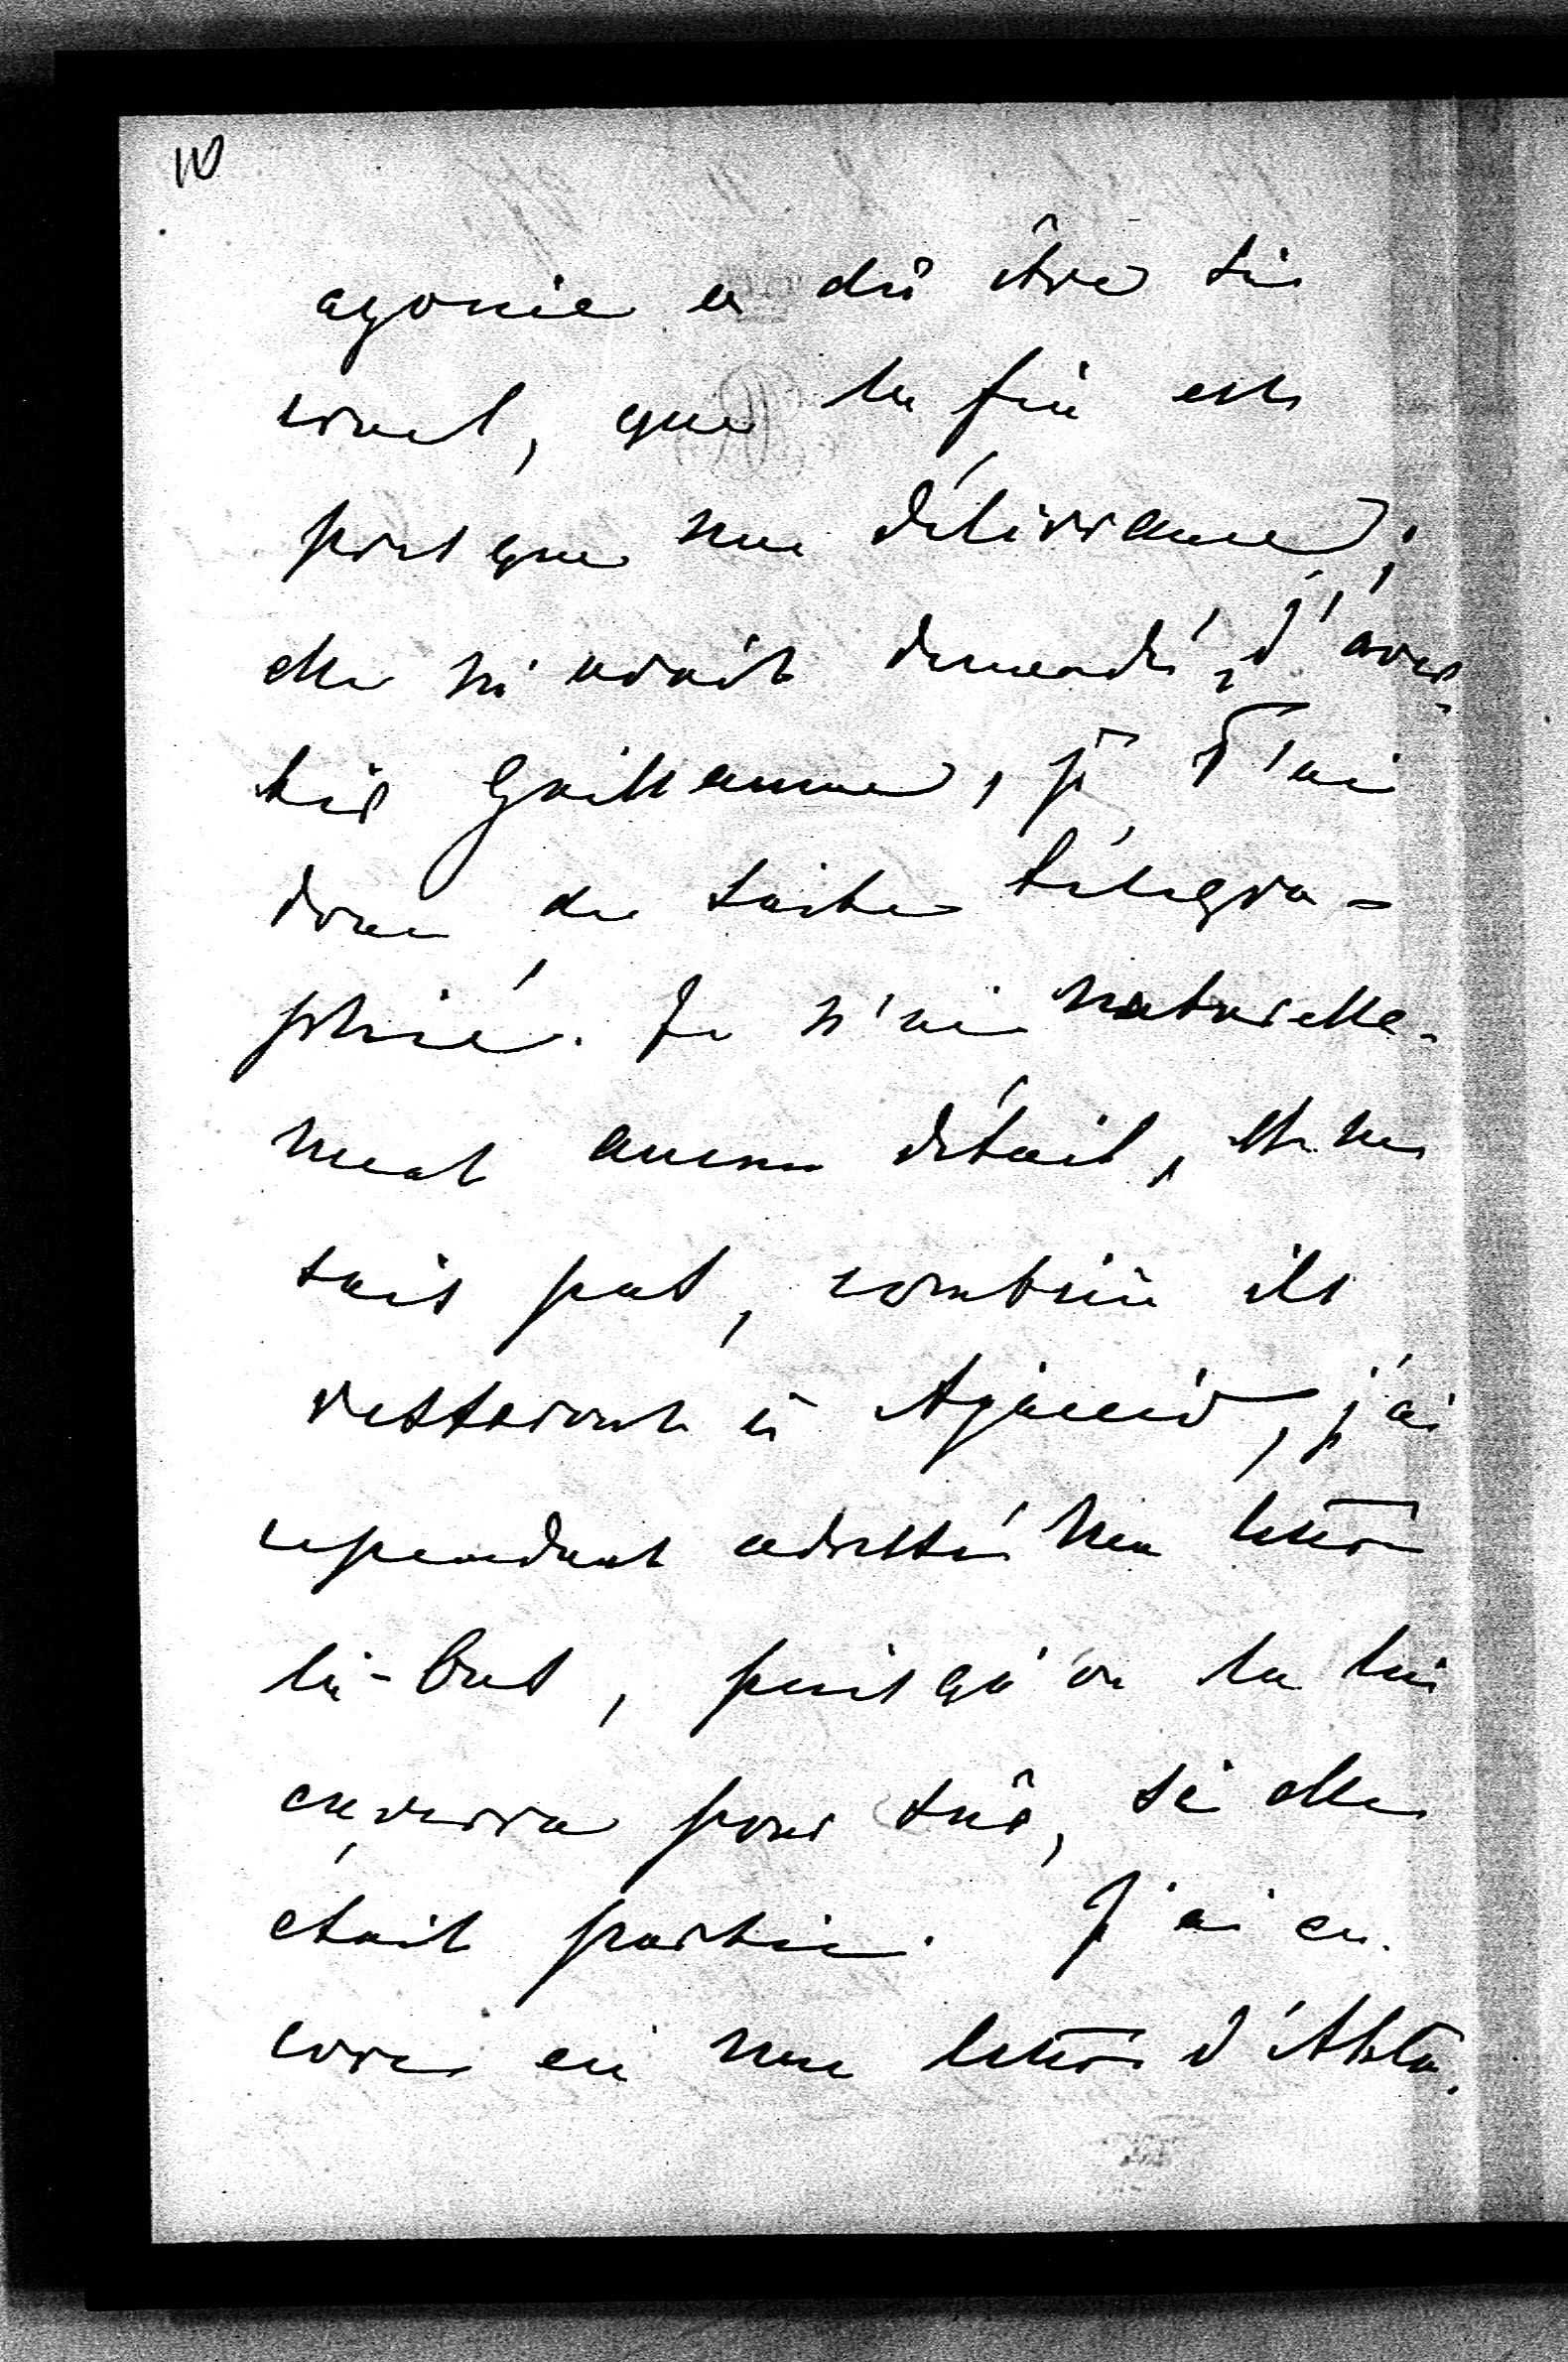 10
agonie a dû être si
cruel, que la fin est
presque une délivrance;
elle m'avait demandé, d'aver-
tir Guillaume, je l'ai
donc de suite télégra-
phié. Je n'ai naturelle-
ment aucun détail, et ne
sais pas, combien ils
resteront à Ajaccio, j'ai
cependant adressé ma lettre
là-bas, puisqu'on la lui
enverra pour sûr, si elle
était partie. J'ai en-
core eu une lettre d'Abla.